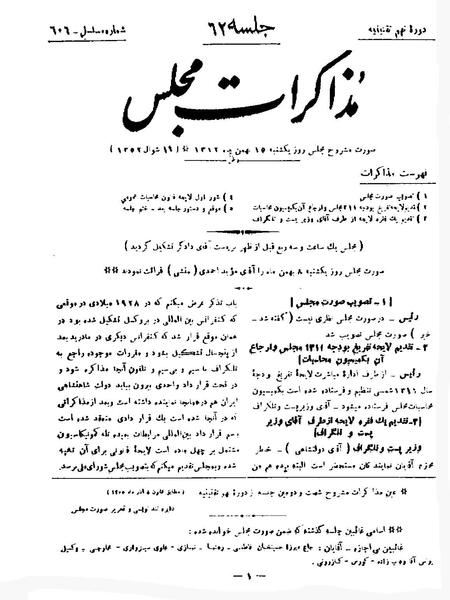 دورهٔ نهم تقنینیه
جلسه ۶۲
شماره مسلسل - ۶۰۶
مذاکرات مجلس
صورت مشروح مجلس روز یکشنبه ۱۵ بهمن ماه ۱۳۱۲ (۱۹ شوال ۱۳۵۲)
فهرست مذاکرات
۱) تصویب صورت مجلس
۲) تقدیم لایحه تفریغ بودجه ۳۱۱ مجلس و ارجاع آن بکمیسیون محاسبات
۳) تقدیم یک فقره لایحه از طرف آقای وزیر پست و تلگراف
۴) شور اول لایحه قانون محاسبات عمومی
۵) موقع و دستور جلسه بعد - ختم جلسه
(مجلس یک ساعت و سه ربع قبل از ظهر بریاست آقای دادگر تشکیل گردید)
صورت مجلس روز یکشنبه ۸ بهمن ماه را آقای مؤید احمدی (منشی) قرائت نمودند
[۱- تصویب صورت مجلس]
رئیس - در صورت مجلس نظری نیست (گفته شد -
خیر) صورت مجلس تصویب شد
۲- تقدیم لایحه تفریغ بودجه ۱۳۱۱ مجلس و ارجاع
آن بکمیسیون محاسبات]
رئیس - از طرف ادارهٔ مباشرت لایحهٔ تفریغ بودجهٔ
سال ۱۳۱۱ شمسی تنظیم و فرستاده شده است بکمیسیون
محاسبات مجلس فرستاده میشود - آقای وزیر پست و تلگراف
[۳- تقدیم یک فقره لایحه از طرف آقای وزیر
پست و تلگراف]
وزیر پست و تلگراف (آقای دولتشاهی) - خاطر
محترم آقایان نمایندگان مستحضر است البته بنده هم من
باب تذکر عرض میکنم که در ۱۹۲۸ میلادی در موقعی
که کنفرانس بین المللی در بروکسل تشکیل شده بود در
همان موقع قرار شد که کنفرانس دیگری در مادرید بعد
از پنجسال تشکیل بشود و مقررات موجوده راجع به
تلگراف با سیم و بی سیم و تلفون آنجا مذاکره شود و
در تحت قرار داد واحدی بیرون بیاید دولت شاهنشاهی
ایران هم در همانجا نماینده داشته است و بعد از مذاکراتی
که در آنجا شده است یک قرار دادی منعقد شده است
باسم قرار داد بین المللی مرابطات بعیده که کنوانسیون
مشتمل بر چهل ماده است لایحهٔ قانونی برای آن تهیه
شده و به مجلس تقدیم میکنم که بتصویب مجلس شورای ملی برسد
عین مذاکرات مشروح شصت و دومین جلسه از دورهٔ نهم تقنینیه
دایره تند نویسی و تحریر صورت مجلس
اسامی غائبین جلسه گذشته که ضمن صورت مجلس خوانده شده:
غائبین بی اجازه - آقایان: حاج میرزا حسینخان فاطمی - رهنما - نمازی - علوی سبزواری - مخارجی - وکیل
یونس آقا وهاب زاده - کورس - کازرونی
- ۱ -